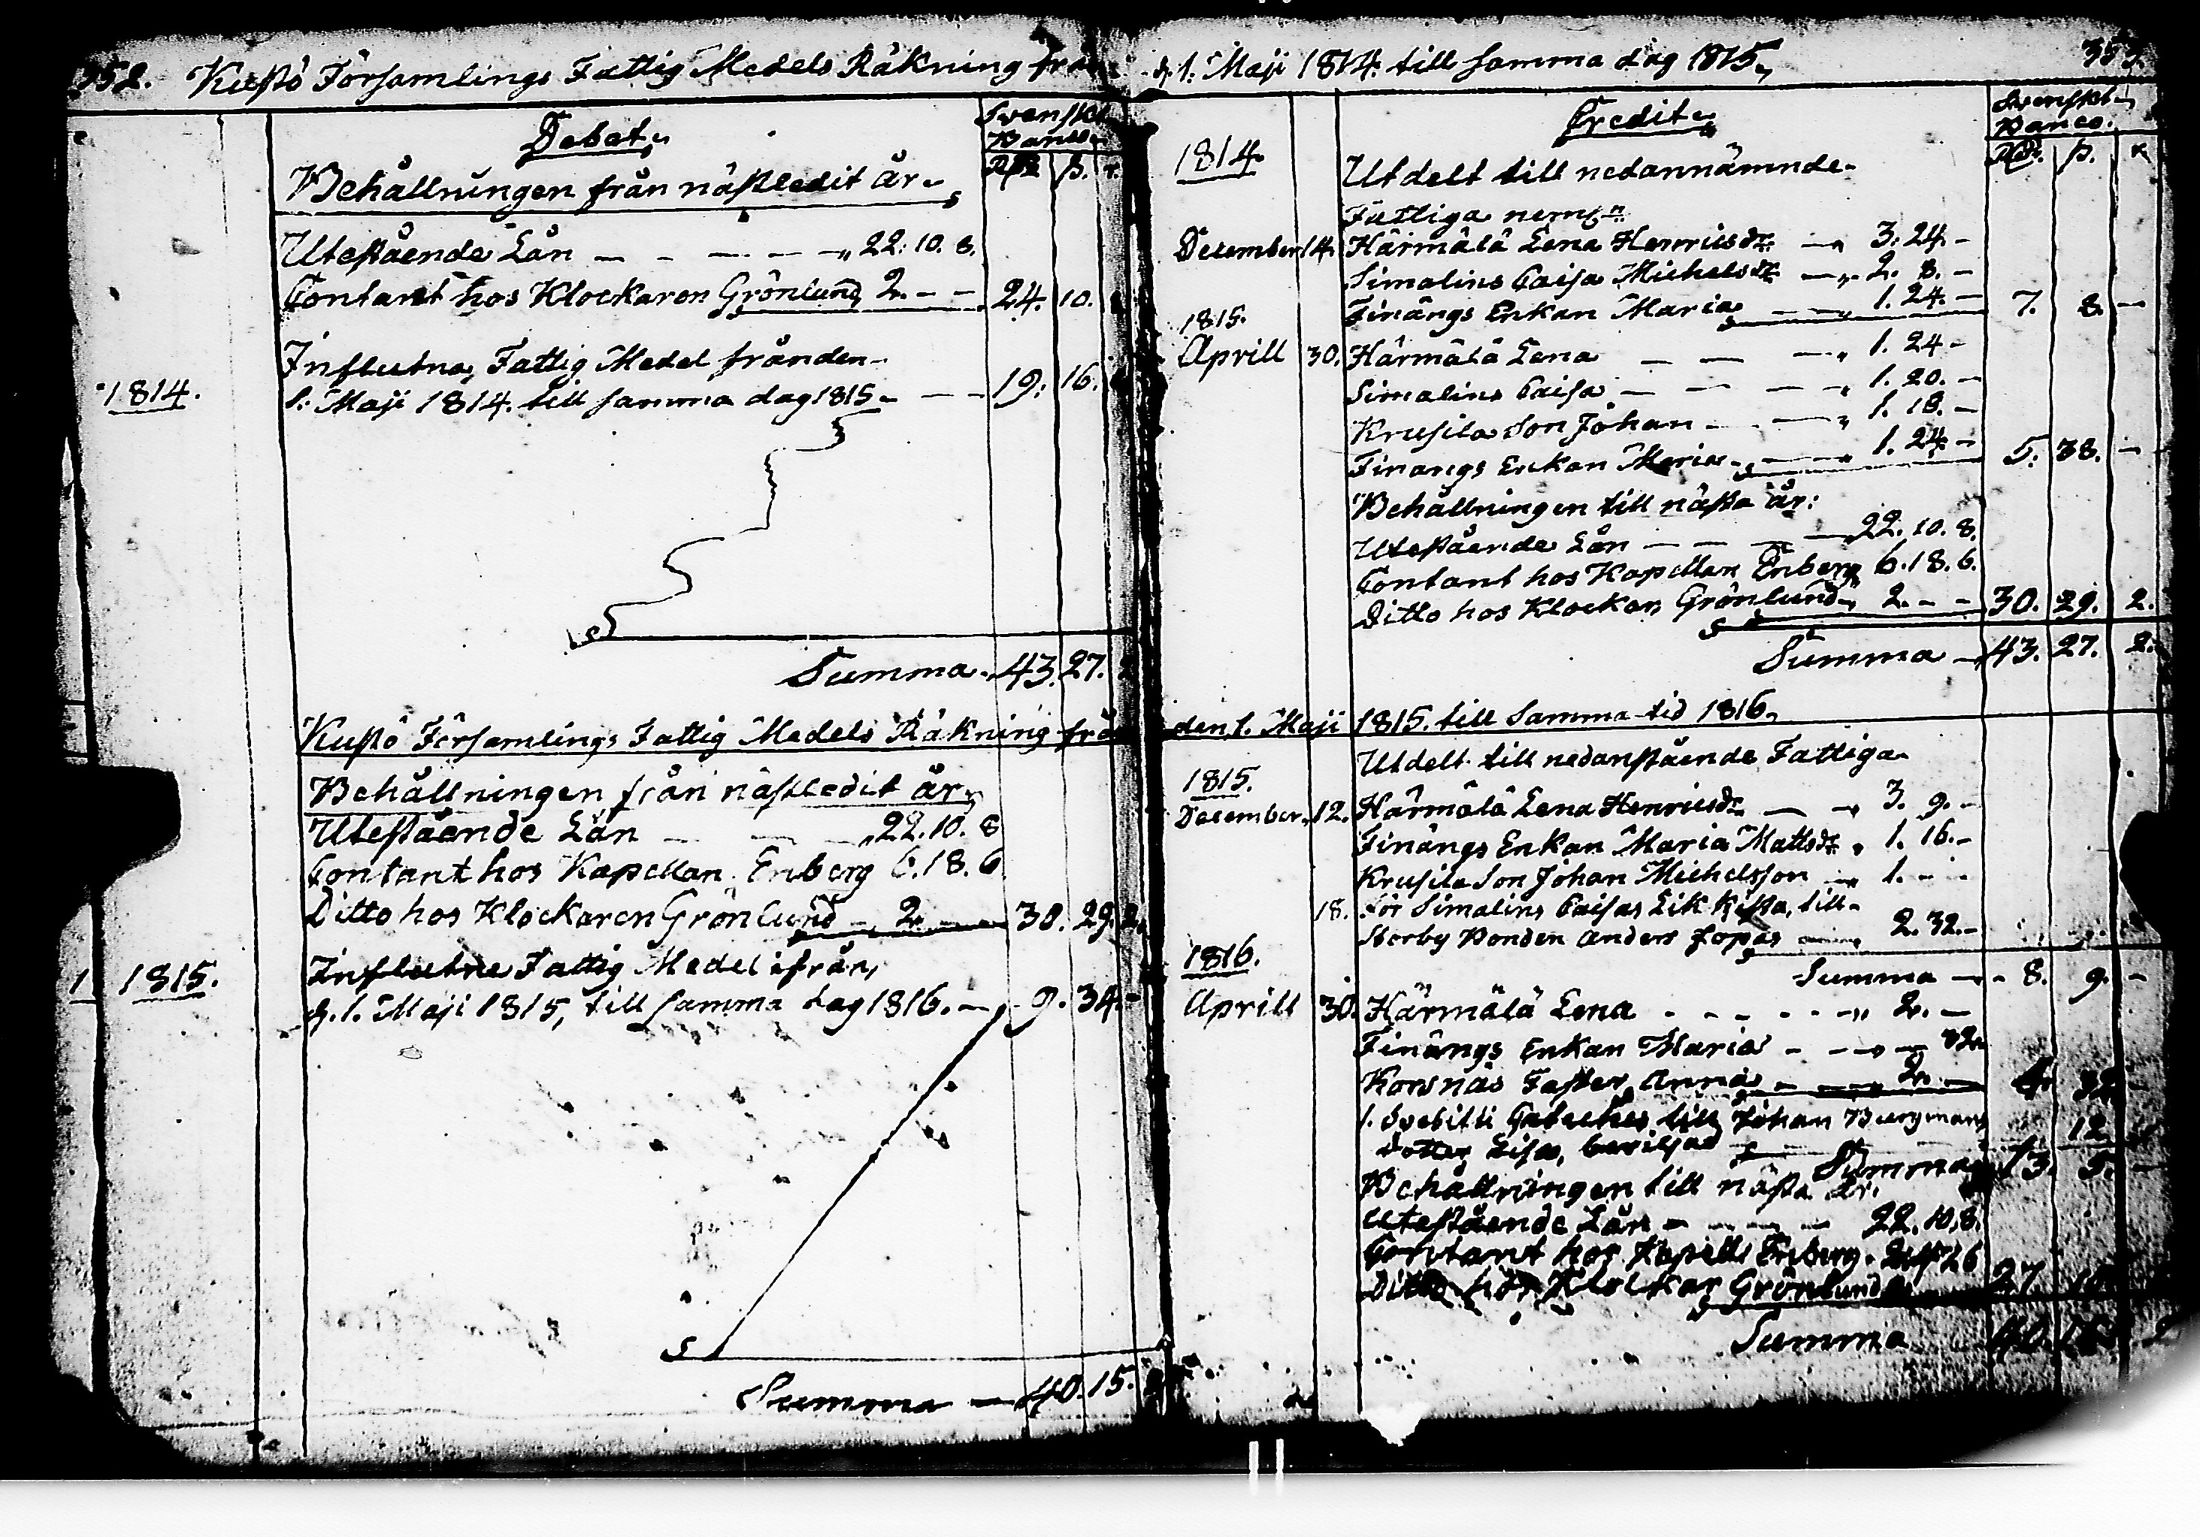 352. Kustö Församlings Fattig Medels Räkning från
Debet.
Svenskt
Banco.
Rdr. s. r.
Behållningen från nästledit år.
Utestående Lån — 22. 10. 8.
Contant hos Klockaren Grönlund 2. — — 24. 10.
Influtne Fattig Medel från den
1814. 1. Maji 1814. till samma dag 1815. — 19. 16.
Summa. 43. 27.
Kustö Församlings Fattig Medels Räkning från
Behållningen från nästledit år.
Utestående Lån — 22. 10. 8
Contant hos Kapellan Enberg 6. 18. 6
Ditto hos Klockaren Grönlund — 2. — 30. 29. 2.
1815. Influtne Fattig Medel ifrån,
d. 1. Maji 1815, till samma dag 1816. — 9. 34. —
Summa — 40. 15.
d. 1. Maji 1814. till samma dag 1815. 353.
Credit.
Svenskt
Banco.
Rdr. s. r
1814. Utdelt till nedannämnde
Fattiga
December 14. Härmälä Lena Henricsdr — 3. 24. —
Simalins Caisa Michelsdr — 2. 8. —
Finängs Enkan Maria — 1. 24. — 7. 8. —
1815.
Aprill 30. Härmälä Lena — 1. 24 —
Simalins Caisa — 1. 20. —
Krusila Son Johan — 1. 18. —
Finängs Enkan Maria — 1. 24 — 5. 38. —
Behållningen till nästa år:
Utestående Lån — 22. 10. 8.
Contant hos Kapellan Enberg 6. 18. 6.
Ditto hos Klockar Grönlund 2. — — 30. 29. 2.
Summa — 43. 27. 2.
den 1. Maji 1815. till samma tid 1816.
1815. Utdelt till nedanstående Fattiga
December. 12. Härmälä Lena Henricsdr — 3. 9. —
Finängs Enkan Maria Mattsdr 1. 16. —
Krusila Son Johan Michelsson — 1. — —
18. För Simalins Caisas Lik Kista, till
Bonden Anders — 2. 32. —
Summa — 8. 9. —
1816.
Aprill 30. Härmälä Lena — 2. —
Finängs Enkan Maria — 32
Korsnäs Faster Anna — 2. — 4. 32
1. till Johan Burgmans
dotter Lisa, 12
Summa 13. 5. —
Behållningen till nästa år.
Utestående Lån — 22. 10. 8.
Contant hos Enberg
Ditto hos Klockar Grönlund 27.
Summa 40.